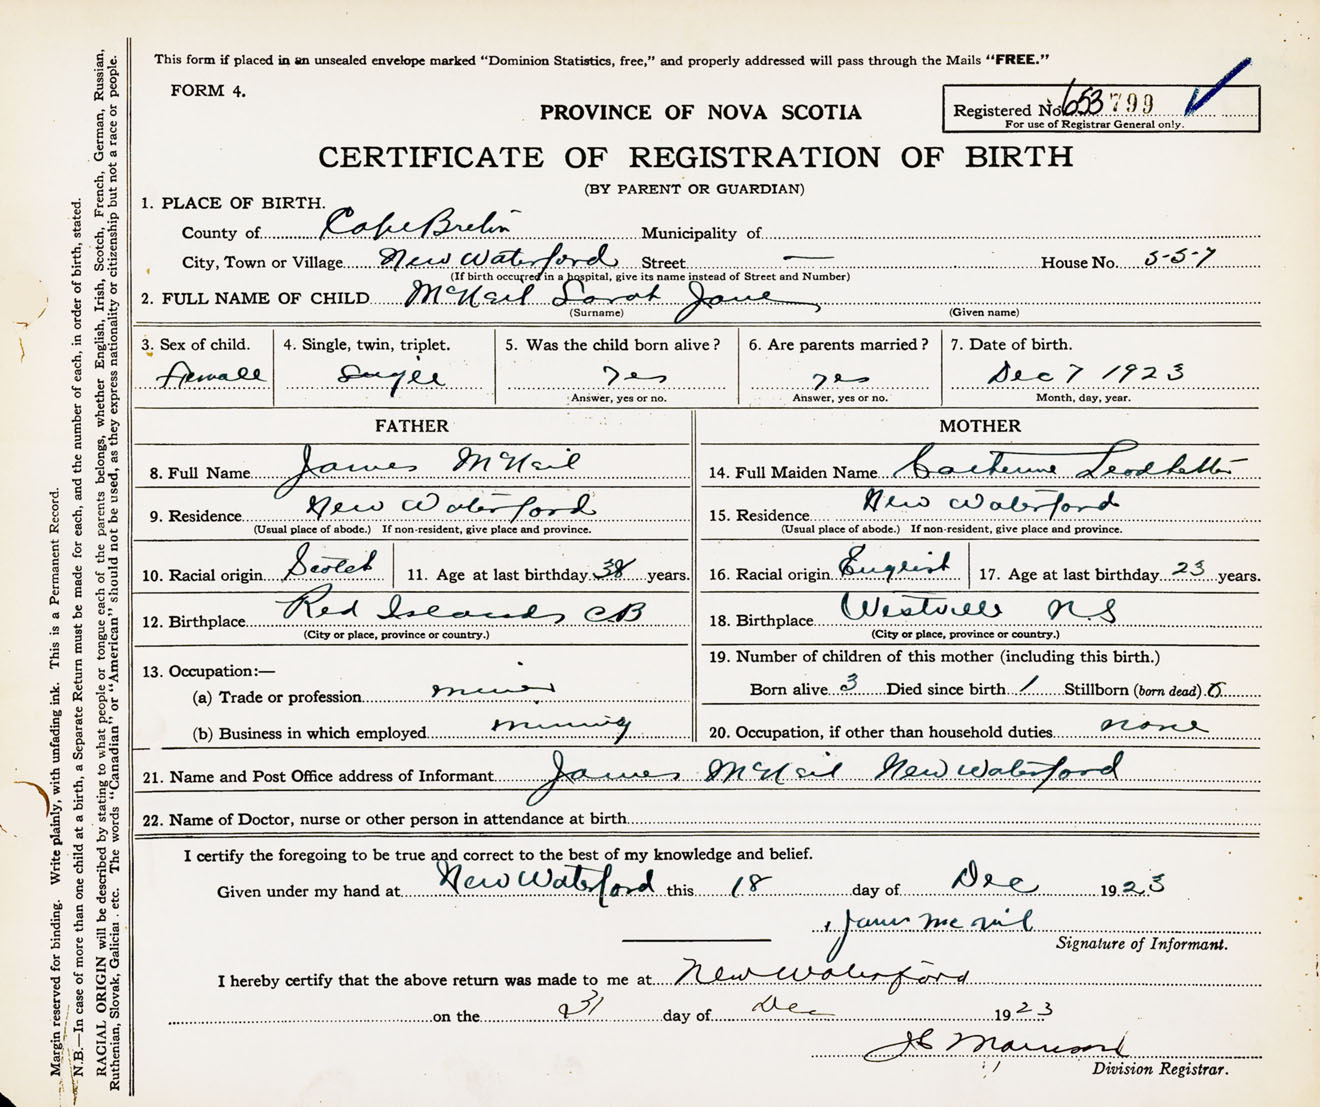 This form if placed in an unsealed envelope marked "Dominion Statistics, free," and properly addressed will pass through the Mails "FREE."
FORM 4.
PROVINCE OF NOVA SCOTIA
Registered No. 653799
For use of Registrar General only.
CERTIFICATE OF REGISTRATION OF BIRTH
(BY PARENT OR GUARDIAN)
1. PLACE OF BIRTH.
County of Cape Breton Municipality of
City, Town or Village New Waterford Street — House No. 557
(If birth occurred in a hospital, give its name instead of Street and Number)
2. FULL NAME OF CHILD McNeil Sarah Jane
(Surname) (Given name)
3. Sex of child. 4. Single, twin, triplet. 5. Was the child born alive? 6. Are parents married? 7. Date of birth.
Female Single Yes Yes Dec 7 1923
Answer, yes or no. Answer, yes or no. Month, day, year.
FATHER
8. Full Name James McNeil
9. Residence New Waterford
(Usual place of abode.) If non-resident, give place and province.
10. Racial origin Scotch 11. Age at last birthday 38 years.
12. Birthplace Red Islands CB
(City or place, province or country.)
13. Occupation:—
(a) Trade or profession miner
(b) Business in which employed mining
MOTHER
14. Full Maiden Name Catherine
15. Residence New Waterford
(Usual place of abode.) If non-resident, give place and province.
16. Racial origin English 17. Age at last birthday 23 years.
18. Birthplace Westville N.S
(City or place, province or country.)
19. Number of children of this mother (including this birth.)
Born alive 3 Died since birth 1 Stillborn (born dead) 0
20. Occupation, if other than household duties none
21. Name and Post Office address of Informant James McNeil New Waterford
22. Name of Doctor, nurse or other person in attendance at birth
I certify the foregoing to be true and correct to the best of my knowledge and belief.
Given under my hand at New Waterford this 18 day of Dec 1923
James McNeil
Signature of Informant.
I hereby certify that the above return was made to me at New Waterford
on the 31 day of Dec 1923
Morrison
Division Registrar.
Margin reserved for binding. Write plainly, with unfading ink. This is a Permanent Record.
N.B.—In case of more than one child at a birth, a Separate Return must be made for each, and the number of each, in order of birth, stated.
RACIAL ORIGIN will be described by stating to what people or tongue each of the parents belongs, whether English, Irish, Scotch, French, German, Russian,
Ruthenian, Slovak, Galician, etc. The words "Canadian" or "American" should not be used, as they express nationality or citizenship but not a race or people.